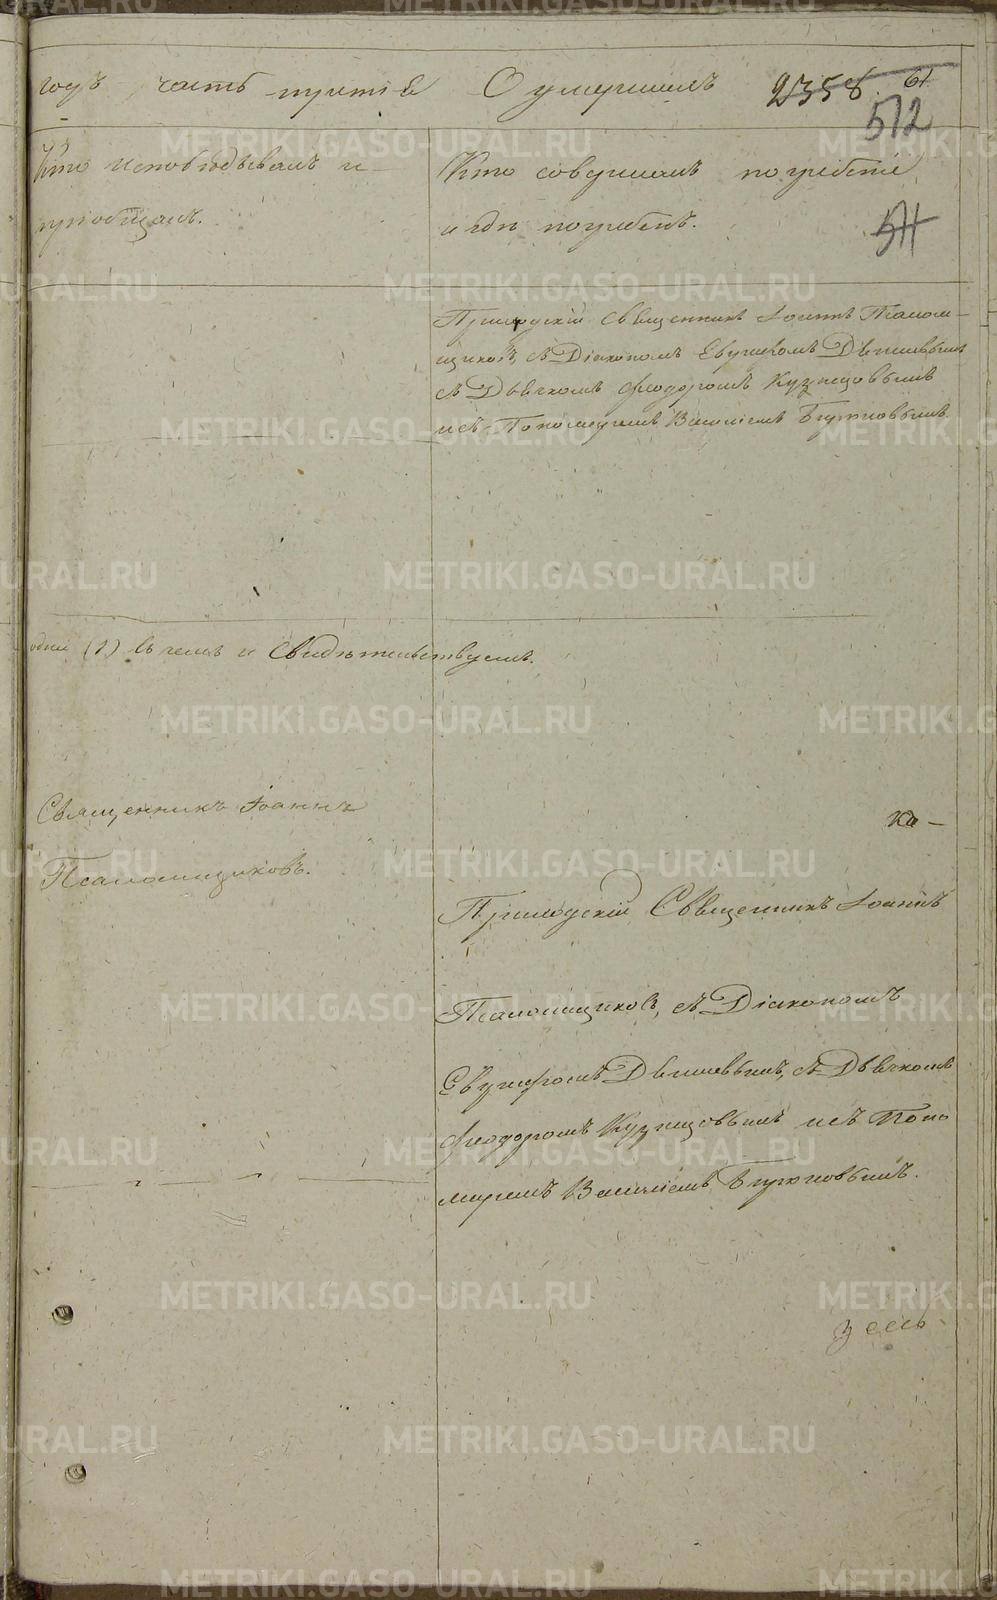 годъ часть третія О умершихъ 2358. 61
512
Кто исповѣдывалъ и
пріобщалъ.
Кто совершалъ погребеніе
и гдѣ погребенъ.
511
Приходскій Священникъ Іоаннъ Псалом-
щиковъ, съ Діакономъ Евграфомъ
съ Дьячкомъ Феодоромъ Кузнецовымъ
и съ Пономаремъ Василіемъ
одна (1) въ чемъ и свидѣтельствуемъ.
Священникъ Іоаннъ
Псаломщиковъ.
ка-
Приходскій Священникъ Іоаннъ
Псаломщиковъ, съ Діакономъ
Евграфомъ съ Дьячкомъ
Феодоромъ Кузнецовымъ и съ Поно
маремъ Василіемъ
METRIKI.GASO-URAL.RU